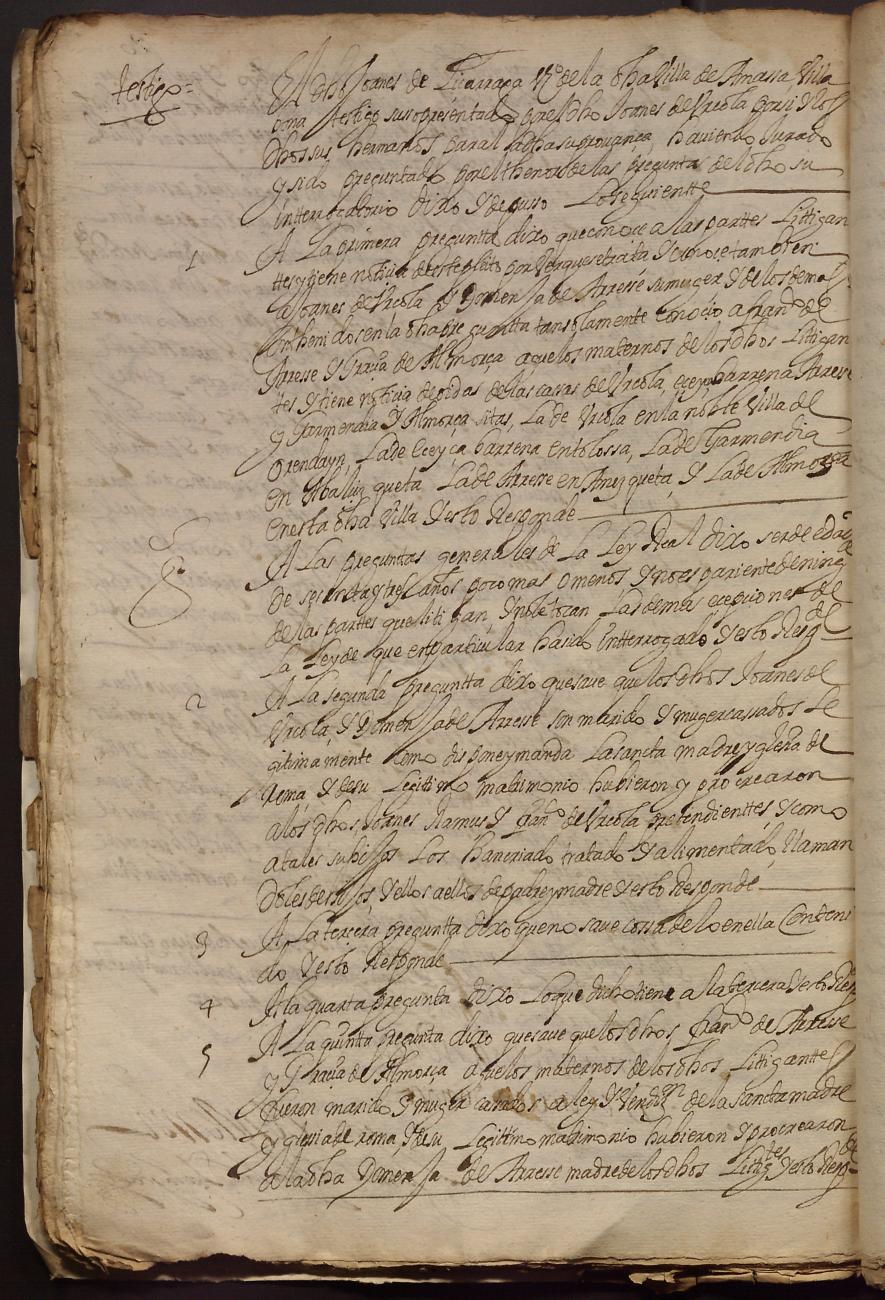 testigo=
El dho Joanes de Liçarraga vº de la dha Villa de Amassa, Villa
bona testigo susopresentado por el dho Joanes de Vrcola por si y los
dhos sus hermanos para la dha su prouança, haviendo Jurado
y sido preguntado por el thenor de las preguntas del dho su
intterrogatorio dixo y depuso Lo seguientte
1 A La primera pregunta dixo que conoce a las parttes Littigan
ttes y tiene noticia de este pleito por ver que se trata y conoce tambien
a Joanes de Vrcola y Domenja de Arresse su muger y de los demas
conthenidos en la dha pregunta tan solamente conocio a franco de
Arresse y Graçia de Almorça aguelos maternos de los dhos Littigan
tes y tiene noticia de oidas de las casas de Vrcola, eceyçabarrena Arresse
y Garmendia y Almorça sitas, La de Vrcola en la noble Villa de
Orendayn, La de Eceyçabarrena en tolossa, La de Garmendia
en Albalizqueta La de Arresse en Amezqueta, y La de Almorça
en esta dha Villa y esto Responde
A Las preguntas generales de La Ley Real dixo ser de edad
de sesenta y tres años poco mas o menos y no es pariente de ning
de las parttes que litigan, y no le tocan Las demas ecepciones de
La Ley de que en particular ha sido intterrogado y esto Respde
2 A La segunda pregunta dixo que save que los dhos Joanes de
Vrcola, y Domenja de Arresse son marido y muger cassados Le
gitimamente como dispone y manda La sancta madre yglesia de
Roma y de su Legittimo matrimonio hubieron y procrearon
a los dhos, Joanes Ramus y franco de Vrcola pretendienttes, y como
a tales sus hijos Los han criado tratado y alimentado, llaman
doles de hijos, y ellos a ellos de padre y madre y esto Responde
3 A La tercera pregunta dixo que no save cossa de lo en ella Conteni
do y esto Responde
4 A la quarta pregunta dixo Lo que dicho tiene a la tercera y esto Resp
5 A La quintta pregunta dixo que save que los dhos franco de Arresse
y Graçia de Almorça aguelos maternos de los dhos Littigantes
fueron marido y muger casados a ley y vendiçn de la sancta madre
yglesia de roma y de su Legittimo matrimonio hubieron y procrearon
a la dha Domenja de Arresse madre de los dhos Littigtes y esto Respde